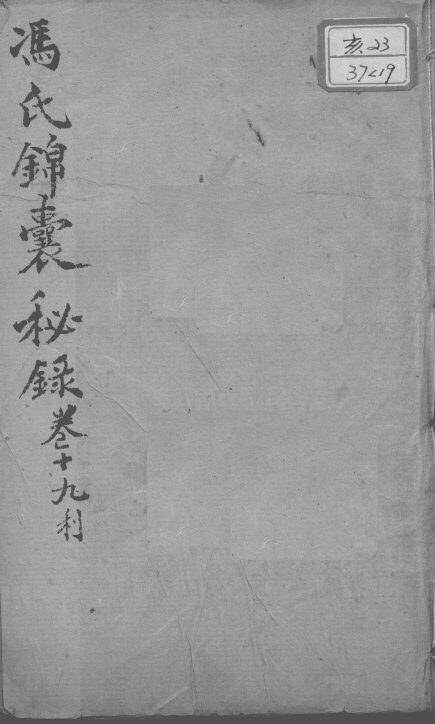 馮氏錦囊秘録卷十九利
亥23
37<19